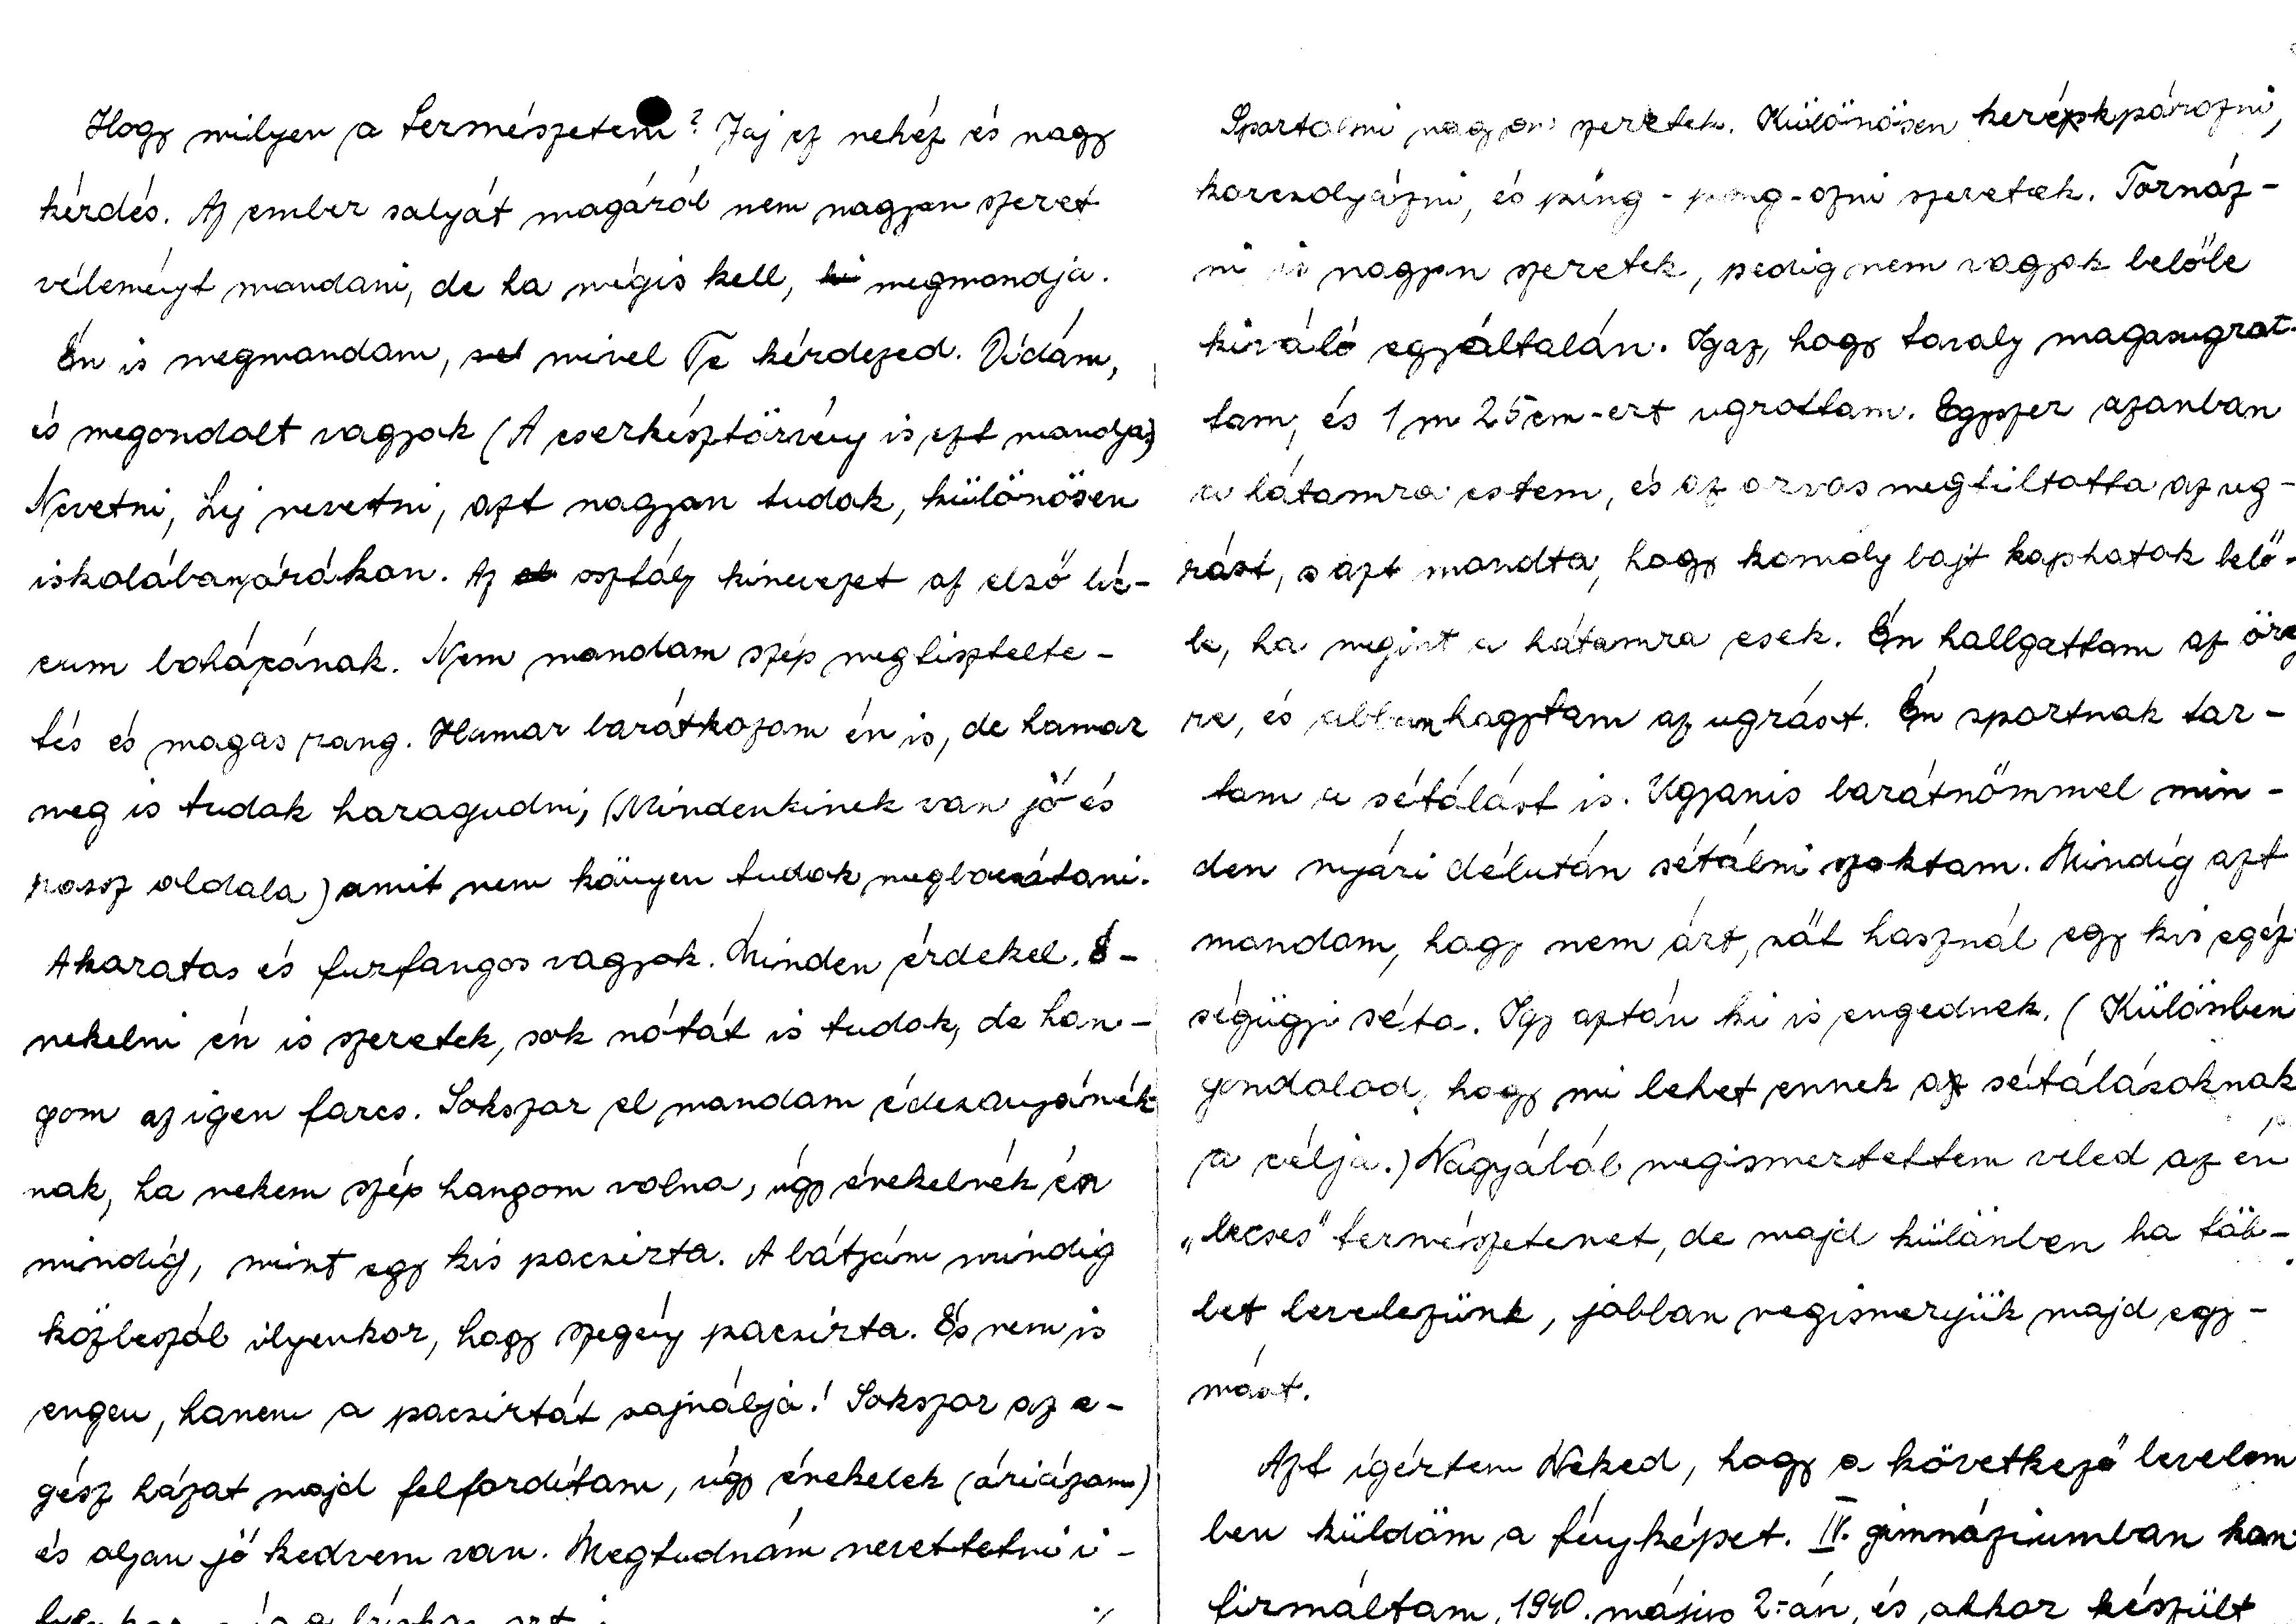 Hogy milyen a természetem? Jaj ez nehéz és nagy
kérdés. Az ember salyát magáról nem nagyon szeret
véleményt mondani, de ha mégis kell, megmondja.
Én is megmondom, mivel Te kérdezed. Vidám,
és megondolt vagyok (A cserkésztörvény is ezt mondja)
Nevetni, hej nevetni, azt nagyon tudok, különösen
iskolában, órákon. Az osztály kinevezet az első lic-
eum bohózának. Nem mondom szép megtisztelte-
tés és magas rang. Hamar barátkozom én is, de hamar
meg is tudok haragudni, (Mindenkinek van jó és
rossz oldala) amit nem könyen tudok megbocsátani.
Akaratos és furfangos vagyok. Minden érdekel. É-
nekelni én is szeretek, sok nótát is tudok, de han-
gom az igen farcs. Sokszor el mondom édesanyámék
nak, ha nekem szép hangom volna, úgy énekelnék én
mindíg, mint egy kis pacsirta. A bátyám mindig
közbeszól ilyenkor, hogy szegény pacsirta. És nem is
engem, hanem a pacsirtát sajnálja! Sokszor az e-
gész házat majd felfordítom, úgy énekelek (áriázom)
és olyan jó kedvem van. Megtudnám nevettetni i-
Sportolni nagyon szeretek. Különösen kerékpározni,
korcsolyázni, és ping-pong-ozni szeretek. Tornáz-
ni is nagyon szeretek, pedig nem vagyok belőle
kiváló egyáltalán. Igaz, hogy tavaly magasugrat-
tam, és 1 m 25 cm-ert ugrottam. Egyszer azonban
a hátamra estem, és az orvos megtiltotta az ug-
rást, s azt mondta, hogy komoly bajt kaphatok belő-
le, ha megint a hátamra esek. Én hallgattam az öreg
re, és abbanhagytam az ugrást. Én sportnak tar-
tom a sétálást is. Ugyanis barátnőmmel min-
den nyári délután sétálni szoktam. Mindíg azt
mondom, hogy nem árt, sőt használ egy kis egéz
ségügyi séta. Igy aztán ki is engednek. (Különben
gondolod, hogy mi lehet ennek az sétálásoknak
a célja.) Nagyából megismertettem veled az én
„becses" természetemet, de majd különben ha töb-
bet levelezünk, jobban megismerjük majd egy-
mást.
Azt ígértem Neked, hogy a következő levelem
ben küldöm a fényképet. IV. gimnáziumban kon
firmáltam, 1940. május 2-án, és akkor készült